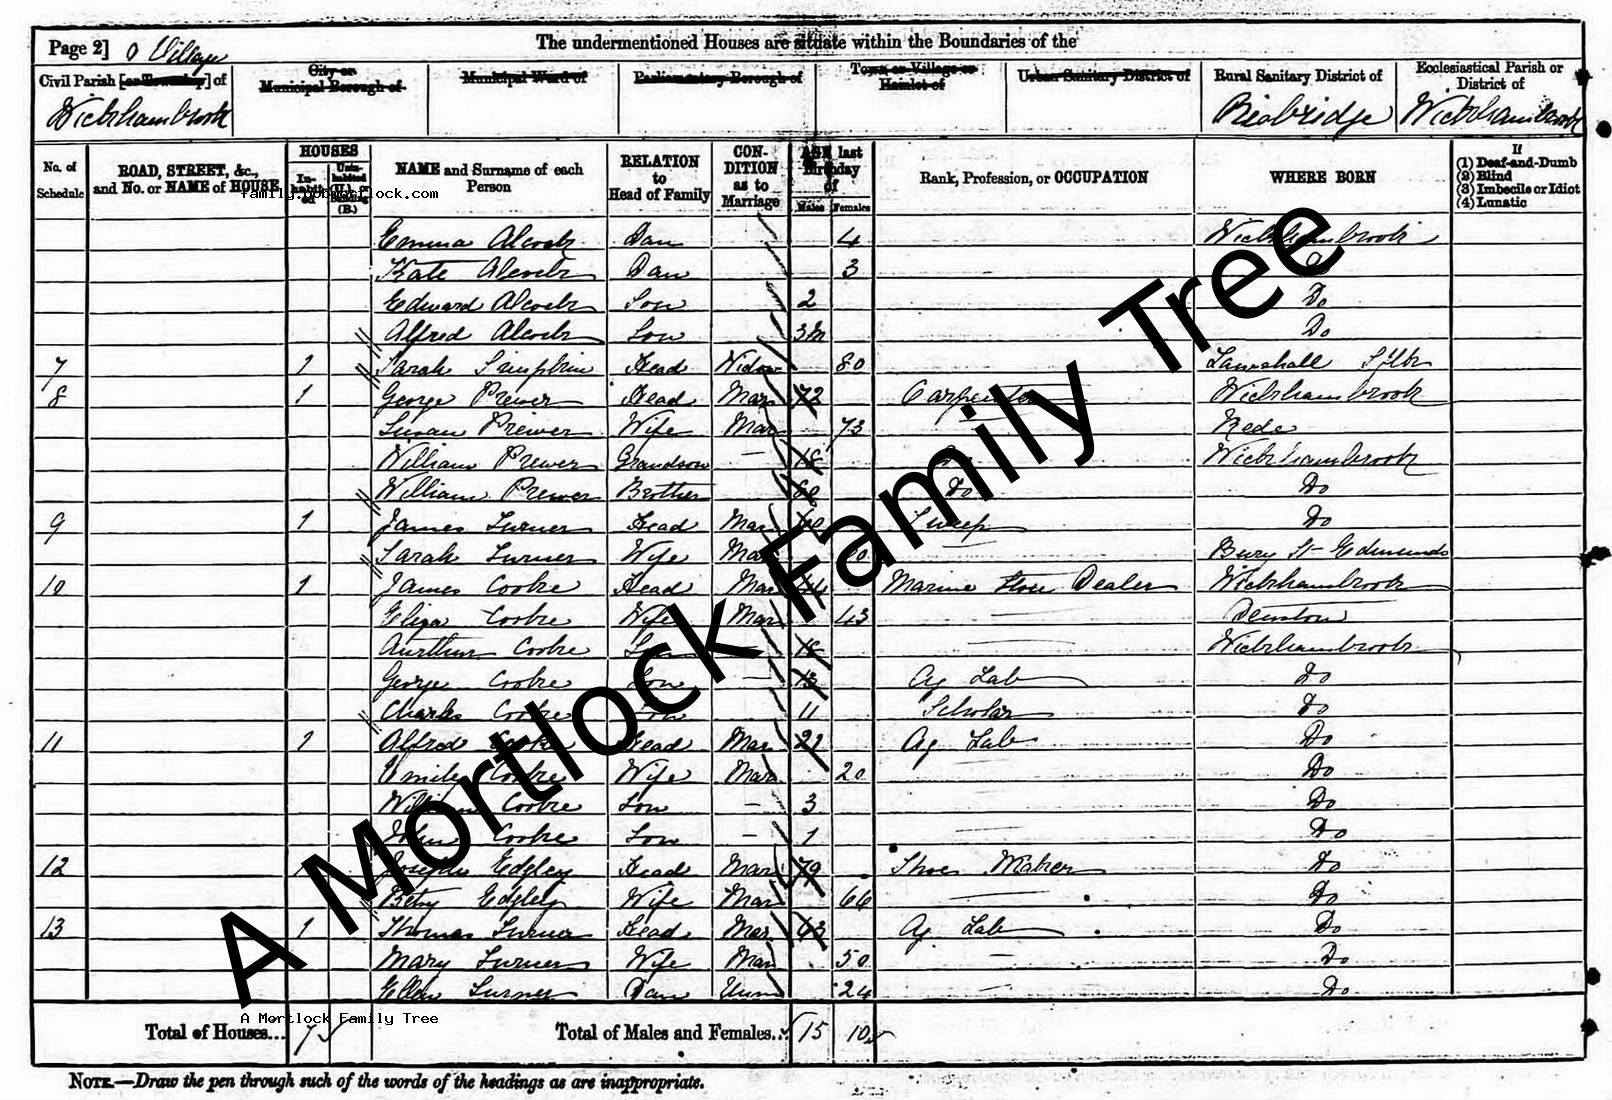 Page 2] Village
The undermentioned Houses are situate within the Boundaries of the
Civil Parish [or Township] of
Wickhambrook
City or
Municipal Borough of
Municipal Ward of
Parliamentary Borough of
Town or Village or
Hamlet of
Urban Sanitary District of
Rural Sanitary District of
Risbridge
Ecclesiastical Parish or
District of
Wickhambrook
No. of
Schedule
ROAD, STREET, &c.,
and No. or NAME of HOUSE
HOUSES
In-
habit-
ed
Unin-
habited
(U.), or
Building
(B.)
NAME and Surname of each
Person
RELATION
to
Head of Family
CON-
DITION
as to
Marriage
AGE last
Birthday
of
Males Females
Rank, Profession, or OCCUPATION
WHERE BORN
If
(1) Deaf-and-Dumb
(2) Blind
(3) Imbecile or Idiot
(4) Lunatic
Emma Alcock Dau 4 Wickhambrook
Kate Alcock Dau 3 Do
Edward Alcock Son 2 Do
Alfred Alcock Son 3m Do
7 1 Sarah Simpkin Head Widow 80
8 1 George Prewer Head Mar 72 Carpenter Wickhambrook
Susan Prewer Wife Mar 73 Rede
William Prewer Grandson 18 Wickhambrook
William Prewer Brother Do Do
9 1 James Turner Head Mar Sweep Do
Sarah Turner Wife Mar Bury St Edmunds
10 1 James Cooke Head Mar Marine Store Dealer Wickhambrook
Eliza Cooke Wife Mar 43 Denston
Aurthur Cooke Son Wickhambrook
George Cooke Son 13 Ag Lab Do
Charles Cooke Son 11 Scholar Do
11 1 Alfred Cooke Head Mar 21 Ag Lab Do
Emily Cooke Wife Mar 20 Do
William Cooke Son 3 Do
John Cooke Son 1 Do
12 Joseph Edgley Head Mar 79 Shoe Maker Do
Betsy Edgley Wife Mar 66 Do
13 1 Thomas Turner Head Mar 43 Ag Lab Do
Mary Turner Wife Mar 50 Do
Ellen Turner Dau Unm 24 Do
Total of Houses... 7 Total of Males and Females... 15 10
NOTE.—Draw the pen through such of the words of the headings as are inappropriate.
A Mortlock Family Tree
A Mortlock Family Tree